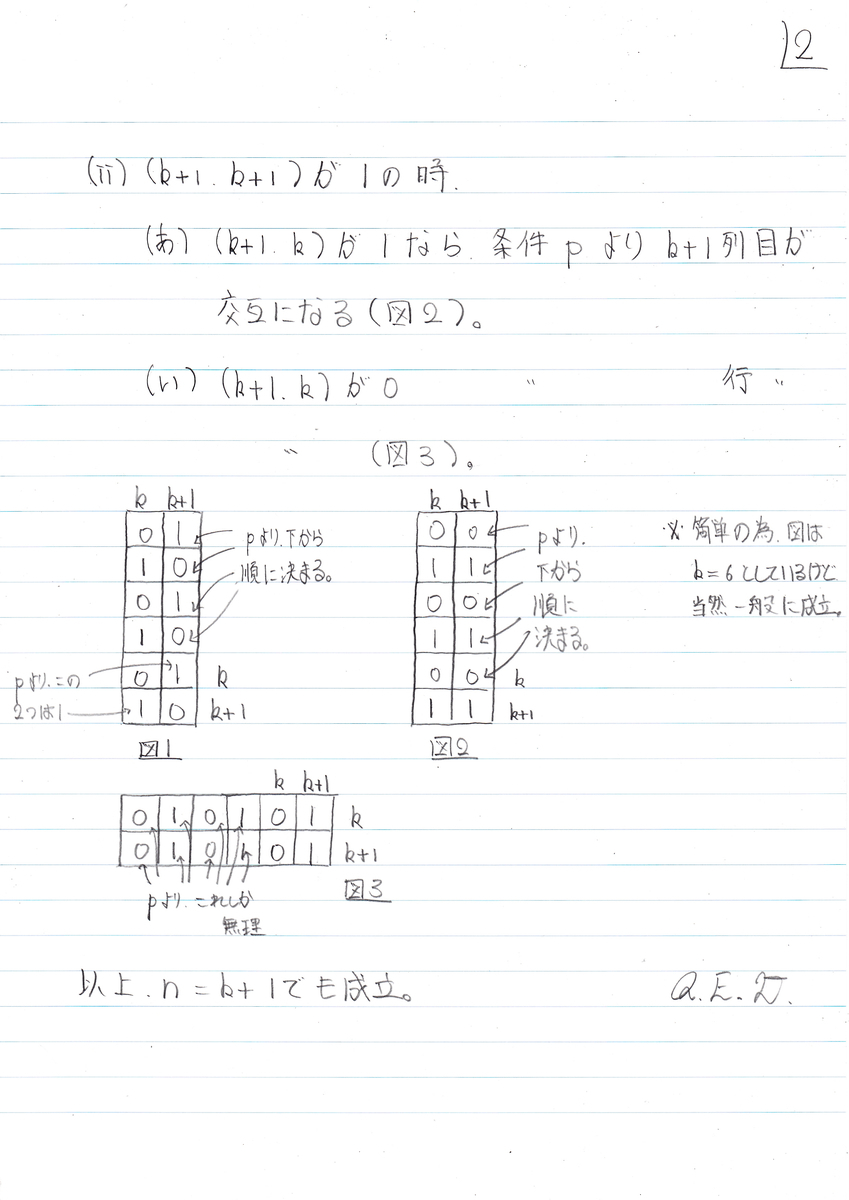 2
(ii) (k+1, k+1)が1の時.
(あ) (k+1, k)が1なら、条件pよりk+1列目が
交互になる(図2)。
(い) (k+1, k)が0 〃 行〃
〃 (図3)。
k k+1
0 1
1 0
0 1
1 0
0 1 k
1 0 k+1
pより、下から
順に決まる。
pより、この
2つは1
図1
k k+1
0 0
1 1
0 0
1 1
0 0 k
1 1 k+1
pより、
下から
順に
決まる。
図2
※ 簡単の為、図は
k=6としているけど
当然一般に成立。
k k+1
0 1 0 1 0 1 k
0 1 0 1 0 1 k+1
pより、これしか
無理
図3
以上、n=k+1でも成立。 Q.E.D.